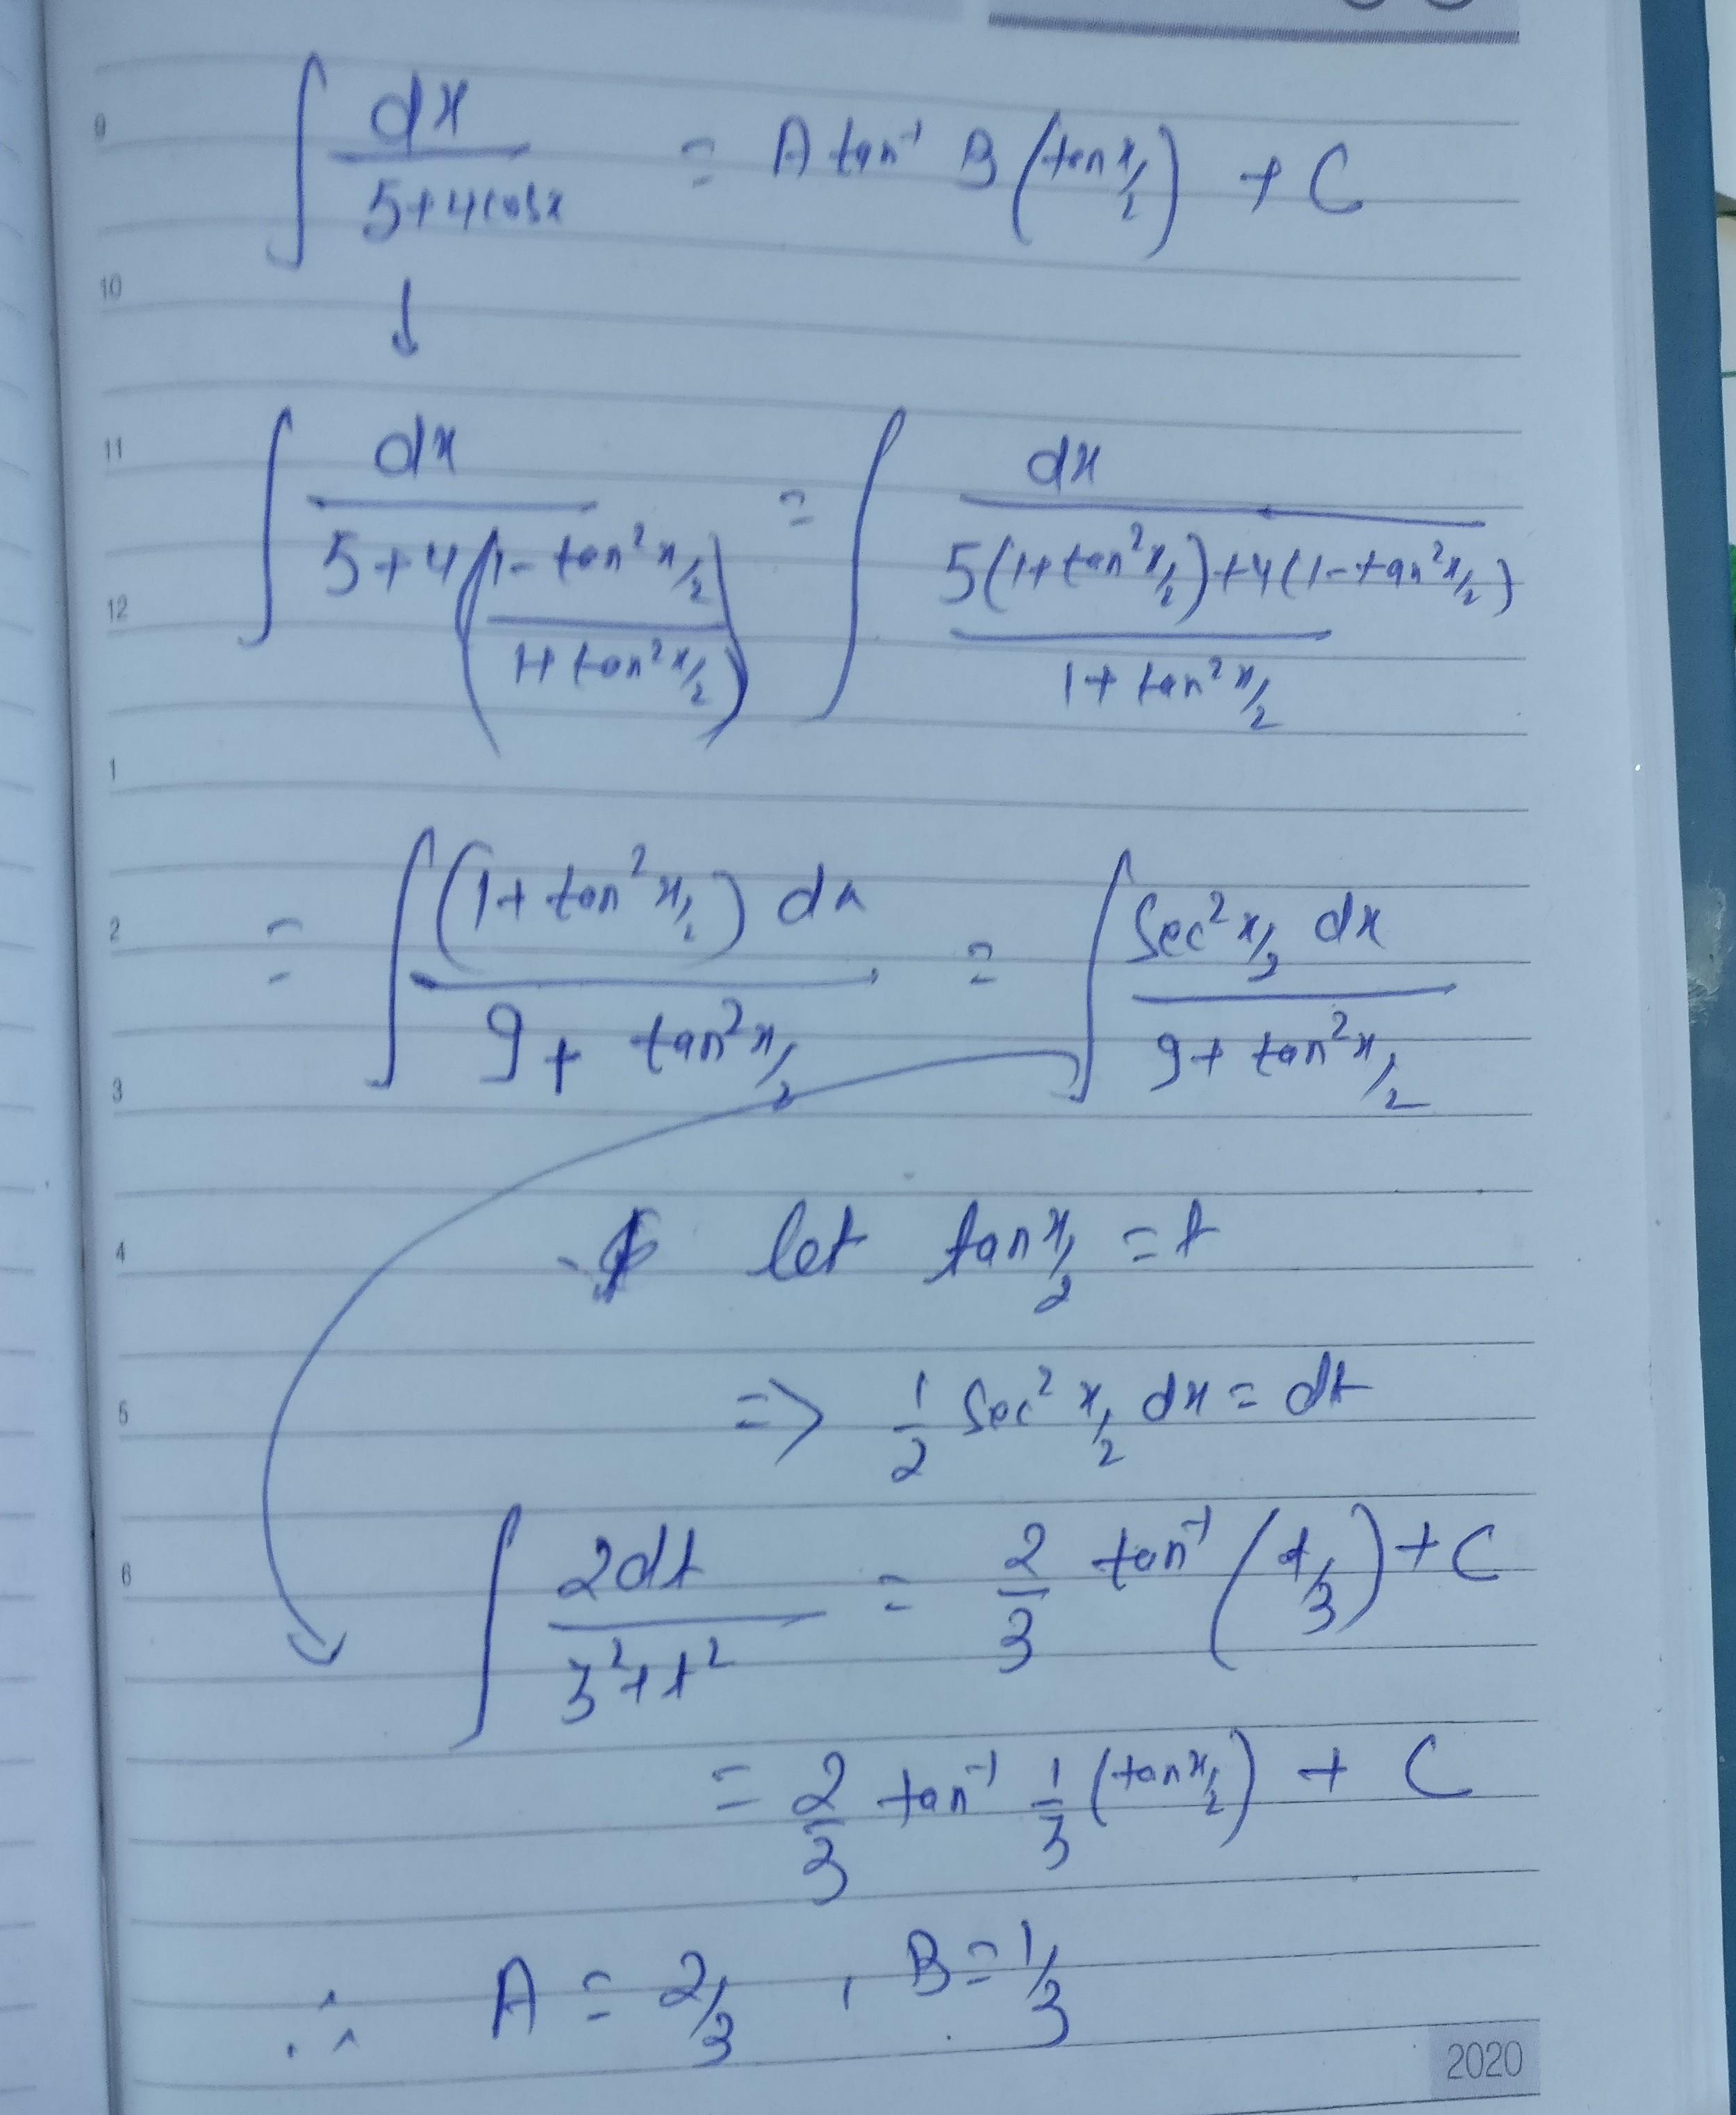 9
∫ dx / 5+4cosx = A tan⁻¹ B (tan x/2) + C
10
↓
11
∫ dx / 5+4(1-tan² x/2 / 1+tan² x/2) = ∫ dx / 5(1+tan² x/2)+4(1-tan² x/2) / 1+tan² x/2
12
1
= ∫ (1+tan² x/2) dx / 9+ tan² x/2 = ∫ Sec² x/2 dx / 9+ tan² x/2
2
3
let tan x/2 = t
4
=> 1/2 Sec² x/2 dx = dt
5
∫ 2dt / 3²+t² = 2/3 tan⁻¹ (t/3) + C
6
= 2/3 tan⁻¹ 1/3 (tan x/2) + C
∴ A = 2/3 , B = 1/3
2020